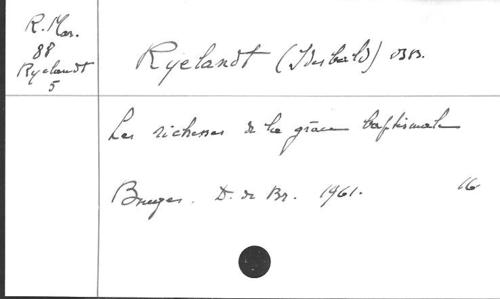 R. Mar.
88
Ryelandt
5
Ryelandt (Idesbald) OSB.
Les richesses de la grâce baptismale
Bruges. D. de Br. 1961. 16